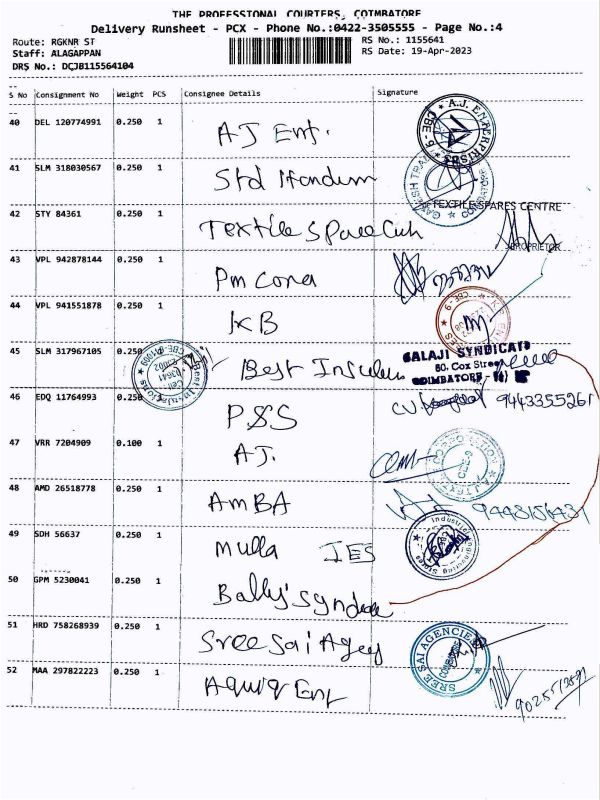 THE PROFESSIONAL COURIERS, COIMBATORE
Delivery Runsheet - PCX - Phone No.:0422-3505555 - Page No.:4
Route: RGKNR ST
RS No.: 1155641
Staff: ALAGAPPAN
RS Date: 19-Apr-2023
DRS No.: DCJB115564104
S No Consignment No Weight PCS Consignee Details Signature
40 DEL 120774991 0.250 1 AJ Ent.
A.J. ENTERPRISES
CBE-9
41 SLM 318030567 0.250 1 Std
COIMBATORE
42 STY 84361 0.250 1 Textile Spare
TEXTILE SPARES CENTRE
PROPRIETOR
43 VPL 942878144 0.250 1 Pm
44 VPL 941551878 0.250 1 KB
CBE-9
45 SLM 317967105 0.250 1 Best
BALAJI SYNDICATE
80, Cox Street
COIMBATORE -
46 EDQ 11764993 0.250 1 PSS
9443355261
47 VRR 7204909 0.100 1 A.J.
CBE-9
48 AMD 26518778 0.250 1 AMBA
49 SDH 56637 0.250 1 Mulla IES
Industrial Engineering
50 GPM 5230041 0.250 1
51 HRD 758268939 0.250 1 Sree Sai Agey
SREE SAI AGENCIES
COIMBATORE
52 MAA 297822223 0.250 1